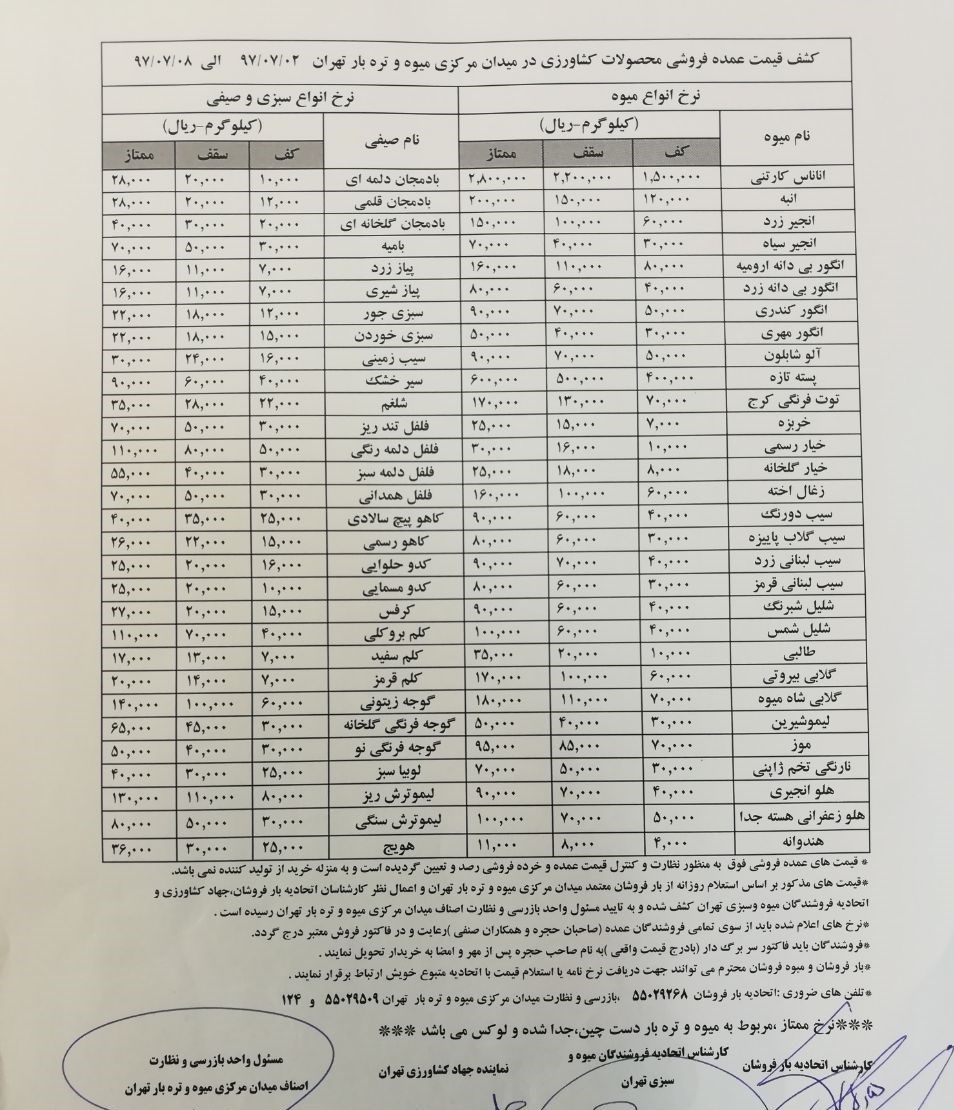 کشف قیمت عمده فروشی محصولات کشاورزی در میدان مرکزی میوه و تره بار تهران ۹۷/۰۷/۰۲ الی ۹۷/۰۷/۰۸
نرخ انواع میوه نرخ انواع سبزی و صیفی
نام میوه (کیلوگرم-ریال) نام صیفی (کیلوگرم-ریال)
کف سقف ممتاز کف سقف ممتاز
اناناس کارتنی ۱,۵۰۰,۰۰۰ ۲,۲۰۰,۰۰۰ ۲,۸۰۰,۰۰۰ بادمجان دلمه ای ۱۰,۰۰۰ ۲۰,۰۰۰ ۲۸,۰۰۰
انبه ۱۲۰,۰۰۰ ۱۵۰,۰۰۰ ۲۰۰,۰۰۰ بادمجان قلمی ۱۲,۰۰۰ ۲۰,۰۰۰ ۲۸,۰۰۰
انجیر زرد ۶۰,۰۰۰ ۱۰۰,۰۰۰ ۱۵۰,۰۰۰ بادمجان گلخانه ای ۲۰,۰۰۰ ۳۰,۰۰۰ ۴۰,۰۰۰
انجیر سیاه ۳۰,۰۰۰ ۴۰,۰۰۰ ۷۰,۰۰۰ بامیه ۳۰,۰۰۰ ۵۰,۰۰۰ ۷۰,۰۰۰
انگور بی دانه ارومیه ۸۰,۰۰۰ ۱۱۰,۰۰۰ ۱۶۰,۰۰۰ پیاز زرد ۷,۰۰۰ ۱۱,۰۰۰ ۱۶,۰۰۰
انگور بی دانه زرد ۴۰,۰۰۰ ۶۰,۰۰۰ ۸۰,۰۰۰ پیاز شیری ۷,۰۰۰ ۱۱,۰۰۰ ۱۶,۰۰۰
انگور کندری ۵۰,۰۰۰ ۷۰,۰۰۰ ۹۰,۰۰۰ سبزی جور ۱۲,۰۰۰ ۱۸,۰۰۰ ۲۲,۰۰۰
انگور مهری ۳۰,۰۰۰ ۴۰,۰۰۰ ۵۰,۰۰۰ سبزی خوردن ۱۵,۰۰۰ ۱۸,۰۰۰ ۲۲,۰۰۰
آلو شابلون ۵۰,۰۰۰ ۷۰,۰۰۰ ۹۰,۰۰۰ سیب زمینی ۱۶,۰۰۰ ۲۴,۰۰۰ ۳۰,۰۰۰
پسته تازه ۴۰۰,۰۰۰ ۵۰۰,۰۰۰ ۶۰۰,۰۰۰ سیر خشک ۴۰,۰۰۰ ۶۰,۰۰۰ ۹۰,۰۰۰
توت فرنگی کرج ۷۰,۰۰۰ ۱۳۰,۰۰۰ ۱۷۰,۰۰۰ شلغم ۲۲,۰۰۰ ۲۸,۰۰۰ ۳۵,۰۰۰
خربزه ۷,۰۰۰ ۱۵,۰۰۰ ۲۵,۰۰۰ فلفل تند ریز ۳۰,۰۰۰ ۵۰,۰۰۰ ۷۰,۰۰۰
خیار رسمی ۱۰,۰۰۰ ۱۶,۰۰۰ ۳۰,۰۰۰ فلفل دلمه رنگی ۵۰,۰۰۰ ۸۰,۰۰۰ ۱۱۰,۰۰۰
خیار گلخانه ۸,۰۰۰ ۱۸,۰۰۰ ۲۵,۰۰۰ فلفل دلمه سبز ۳۰,۰۰۰ ۴۰,۰۰۰ ۵۵,۰۰۰
زغال اخته ۶۰,۰۰۰ ۱۰۰,۰۰۰ ۱۶۰,۰۰۰ فلفل همدانی ۳۰,۰۰۰ ۵۰,۰۰۰ ۷۰,۰۰۰
سیب دورنگ ۴۰,۰۰۰ ۶۰,۰۰۰ ۹۰,۰۰۰ کاهو پیچ سالادی ۲۵,۰۰۰ ۳۵,۰۰۰ ۴۰,۰۰۰
سیب گلاب پاییزه ۳۰,۰۰۰ ۶۰,۰۰۰ ۸۰,۰۰۰ کاهو رسمی ۱۵,۰۰۰ ۲۲,۰۰۰ ۲۶,۰۰۰
سیب لبنانی زرد ۴۰,۰۰۰ ۷۰,۰۰۰ ۹۰,۰۰۰ کدو حلوایی ۱۶,۰۰۰ ۲۰,۰۰۰ ۲۵,۰۰۰
سیب لبنانی قرمز ۳۰,۰۰۰ ۶۰,۰۰۰ ۸۰,۰۰۰ کدو مسمایی ۱۰,۰۰۰ ۲۰,۰۰۰ ۲۵,۰۰۰
شلیل شبرنگ ۴۰,۰۰۰ ۶۰,۰۰۰ ۹۰,۰۰۰ کرفس ۱۵,۰۰۰ ۲۰,۰۰۰ ۲۷,۰۰۰
شلیل شمس ۴۰,۰۰۰ ۶۰,۰۰۰ ۱۰۰,۰۰۰ کلم بروکلی ۴۰,۰۰۰ ۷۰,۰۰۰ ۱۱۰,۰۰۰
طالبی ۱۰,۰۰۰ ۲۰,۰۰۰ ۳۵,۰۰۰ کلم سفید ۷,۰۰۰ ۱۳,۰۰۰ ۱۷,۰۰۰
گلابی بیروتی ۶۰,۰۰۰ ۱۰۰,۰۰۰ ۱۷۰,۰۰۰ کلم قرمز ۷,۰۰۰ ۱۴,۰۰۰ ۲۰,۰۰۰
گلابی شاه میوه ۷۰,۰۰۰ ۱۱۰,۰۰۰ ۱۸۰,۰۰۰ گوجه زیتونی ۶۰,۰۰۰ ۱۰۰,۰۰۰ ۱۴۰,۰۰۰
لیموشیرین ۳۰,۰۰۰ ۴۰,۰۰۰ ۵۰,۰۰۰ گوجه فرنگی گلخانه ۳۰,۰۰۰ ۴۵,۰۰۰ ۶۵,۰۰۰
موز ۷۰,۰۰۰ ۸۵,۰۰۰ ۹۵,۰۰۰ گوجه فرنگی نو ۳۰,۰۰۰ ۴۰,۰۰۰ ۵۰,۰۰۰
نارنگی تخم ژاپنی ۳۰,۰۰۰ ۵۰,۰۰۰ ۷۰,۰۰۰ لوبیا سبز ۲۵,۰۰۰ ۳۰,۰۰۰ ۴۰,۰۰۰
هلو انجیری ۴۰,۰۰۰ ۷۰,۰۰۰ ۹۰,۰۰۰ لیموترش ریز ۸۰,۰۰۰ ۱۱۰,۰۰۰ ۱۳۰,۰۰۰
هلو زعفرانی هسته جدا ۵۰,۰۰۰ ۷۰,۰۰۰ ۱۰۰,۰۰۰ لیموترش سنگی ۳۰,۰۰۰ ۵۰,۰۰۰ ۸۰,۰۰۰
هندوانه ۴,۰۰۰ ۸,۰۰۰ ۱۱,۰۰۰ هویج ۲۵,۰۰۰ ۳۰,۰۰۰ ۳۶,۰۰۰
* قیمت های عمده فروشی فوق به منظور نظارت و کنترل قیمت عمده و خرده فروشی رصد و تعیین گردیده است و به منزله خرید از تولید کننده نمی باشد.
*قیمت های مذکور بر اساس استعلام روزانه از بار فروشان معتمد میدان مرکزی میوه و تره بار تهران و اعمال نظر کارشناسان اتحادیه بار فروشان،جهاد کشاورزی و
اتحادیه فروشندگان میوه وسبزی تهران کشف شده و به تایید مسئول واحد بازرسی و نظارت اصناف میدان مرکزی میوه و تره بار تهران رسیده است .
*نرخ های اعلام شده باید از سوی تمامی فروشندگان عمده (صاحبان حجره و همکاران صنفی )رعایت و در فاکتور فروش معتبر درج گردد.
*فروشندگان باید فاکتور سر برگ دار (بادرج قیمت واقعی )به نام صاحب حجره پس از مهر و امضا به خریدار تحویل نمایند .
*بار فروشان و میوه فروشان محترم می توانند جهت دریافت نرخ نامه یا استعلام قیمت با اتحادیه متبوع خویش ارتباط برقرار نمایند .
*تلفن های ضروری :اتحادیه بار فروشان ۵۵۰۲۹۲۶۸ ،بازرسی و نظارت میدان مرکزی میوه و تره بار تهران ۵۵۰۲۹۵۰۹ و ۱۲۴
***نرخ ممتاز ،مربوط به میوه و تره بار دست چین،جدا شده و لوکس می باشد ***
کارشناس اتحادیه بار فروشان
کارشناس اتحادیه فروشندگان میوه و
سبزی تهران
نماینده جهاد کشاورزی تهران
مسئول واحد بازرسی و نظارت
اصناف میدان مرکزی میوه و تره بار تهران